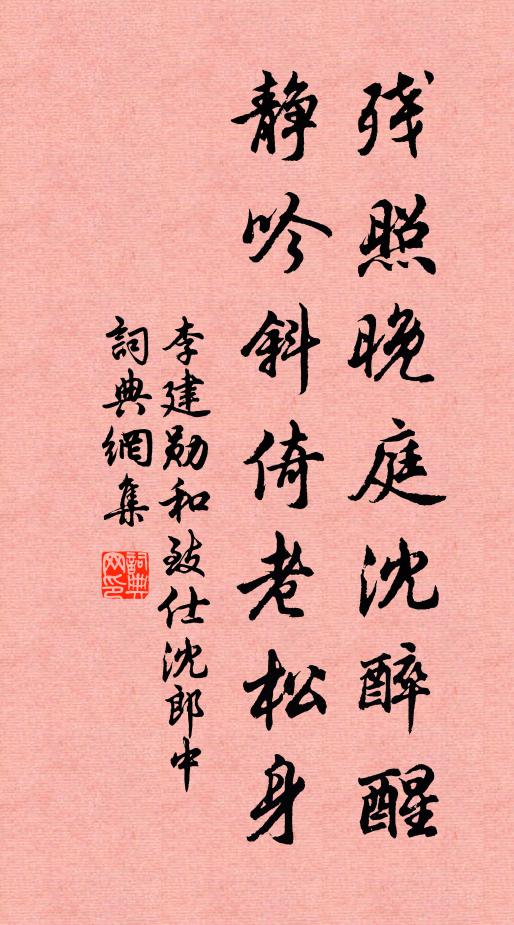 残照晚庭沈醉醒
静吟斜倚老松身
李建勋和致仕沈郎中
詞典網集
詞典網印